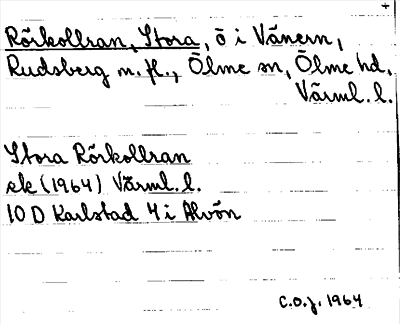 Rörkollran, Stora, ö i Vänern,
Rudsberg m. fl., Ölme sn, Ölme hd,
Värml. l.
Stora Rörkollran
ek (1964) Värml. l.
10 D Karlstad 4 i Alvön
C.O.J. 1964